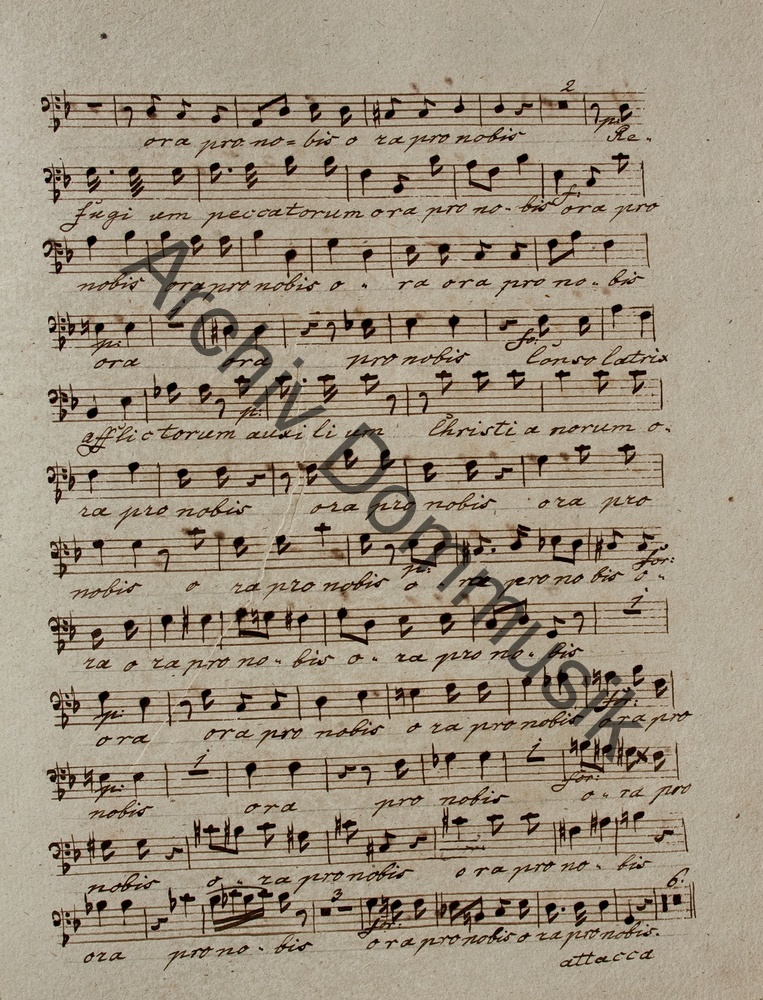 2
ora pro no=bis o ra pro nobis p: Re-
fugi um peccatorum ora pro no-bis ora pro
nobis ora pro nobis o - ra ora pro no-bis
p: ora ora pro nobis fo: Conso latrix
afflictorum p: auxi li um Christi a norum o-
ra pro nobis ora pro nobis ora pro
nobis o ra pro nobis p: o - ra pro no bis for: o -
1
ra o ra pro no-bis o - ra pro no-bis
p: ora ora pro nobis o ra pro nobis ora pro
1 1
p: nobis ora pro nobis for: o - ra pro
nobis o - ra pro nobis o ra pro no-bis
3 6.
ora pro no-bis for: o ra pro nobis o ra pro nobis.
attacca
Archiv Dommusik